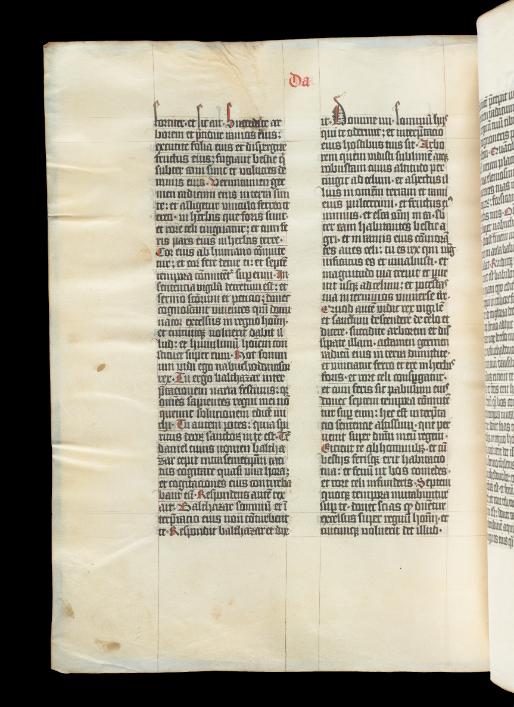 Da
fortiter et sic ait. Succidite ar
borem et p̄cidite ramos eius:
excutite folia eius et dispergite
fructus eius; fugiant bestie q̄
subter eam sunt et volucres de
ramis eius. Verumtamen ger
men radicum eius in terra sini
te: et alligetur vinculo ferreo et
ereo. in herbis que foris sunt.
et rore celi tinguatur; et cum fe
ris pars eius in herbis terre.
Cor eius ab humano cōmute
tur; et cor fere detur ei: et septē
tempora cōmutent͛ sup eum. In
sentencia vigilū decretum est: et
sermo sctōrum et peticio; donec
cognoscant viventes qm̄ domi
natur excelsus in regno hoīm.
et cuicumq; voluerit dabit il
lud: et humilimum hoīem con
stituet super eum. Hoc somni
um vidi ego nabuchodonosor
rex. Tu ergo balthazar inter
ptacionem narra festinus: q̄
omēs sapientes regni mei nō
queunt solucionem edicē mi
chi. Tu autem potes: quia spi
ritus deorꝫ sanctorꝫ in te est. Tūc
daniel cuius nomen baltha
zar cepit intra semetipm̄ taci
tus cogitare quasi una hora;
et cogitaciones eius conturba
bant eū. Respondens autē rex
ait. Balthazar somniū et ī
terp̄tacio eius non cōturbent
te. Respondit balthazar et dix
it. Domine mi. somniū hijs
qui te oderunt; et interp̄tacio
eius hostibus tuis sit. Arbo
rem quem vidisti sublimē atq;
robustam cuius altitudo per
tingit ad celum. et aspectus il
lius in omnem terram et rami
eius pulcerrimi. et fructus eiꝰ
nimius. et esca oīm in ea. sub
ter eam habitantes bestie a
gri. et in ramis eius cōmorā
tes aves celi: tu es rex qui mag
nificatus es et invaluisti. et
magnitudo tua crevit et pve
nit usq; ad celum: et potestas
tua in terminos universe tre.
Quod autē vidit rex vigilē
et sanctum descendere de celo et
dicere. succidite arborem et dis
sipate illam. attamen germen
radicū eius in terra dimittite.
et vinciatur ferro et ere in herbis
foris. et rore celi conspgatur.
et cum feris sit pabulum eius
donec septem tempora cōmutē
tur sup eum: hec est interp̄ta
cio sentencie altissimi. que per
venit super dnm̄ meū regem.
Eicient te ab hominibꝫ. et cū
bestijs ferisq; erit habitacio
tua: et fenū ut bos comedes.
et rore celi infunderis. Septem
quoq; tempora mutabuntur
sup te. donec scias q dnēt͛
excelsus super regnū hoīm. et
cuicumq; voluerit det illud.